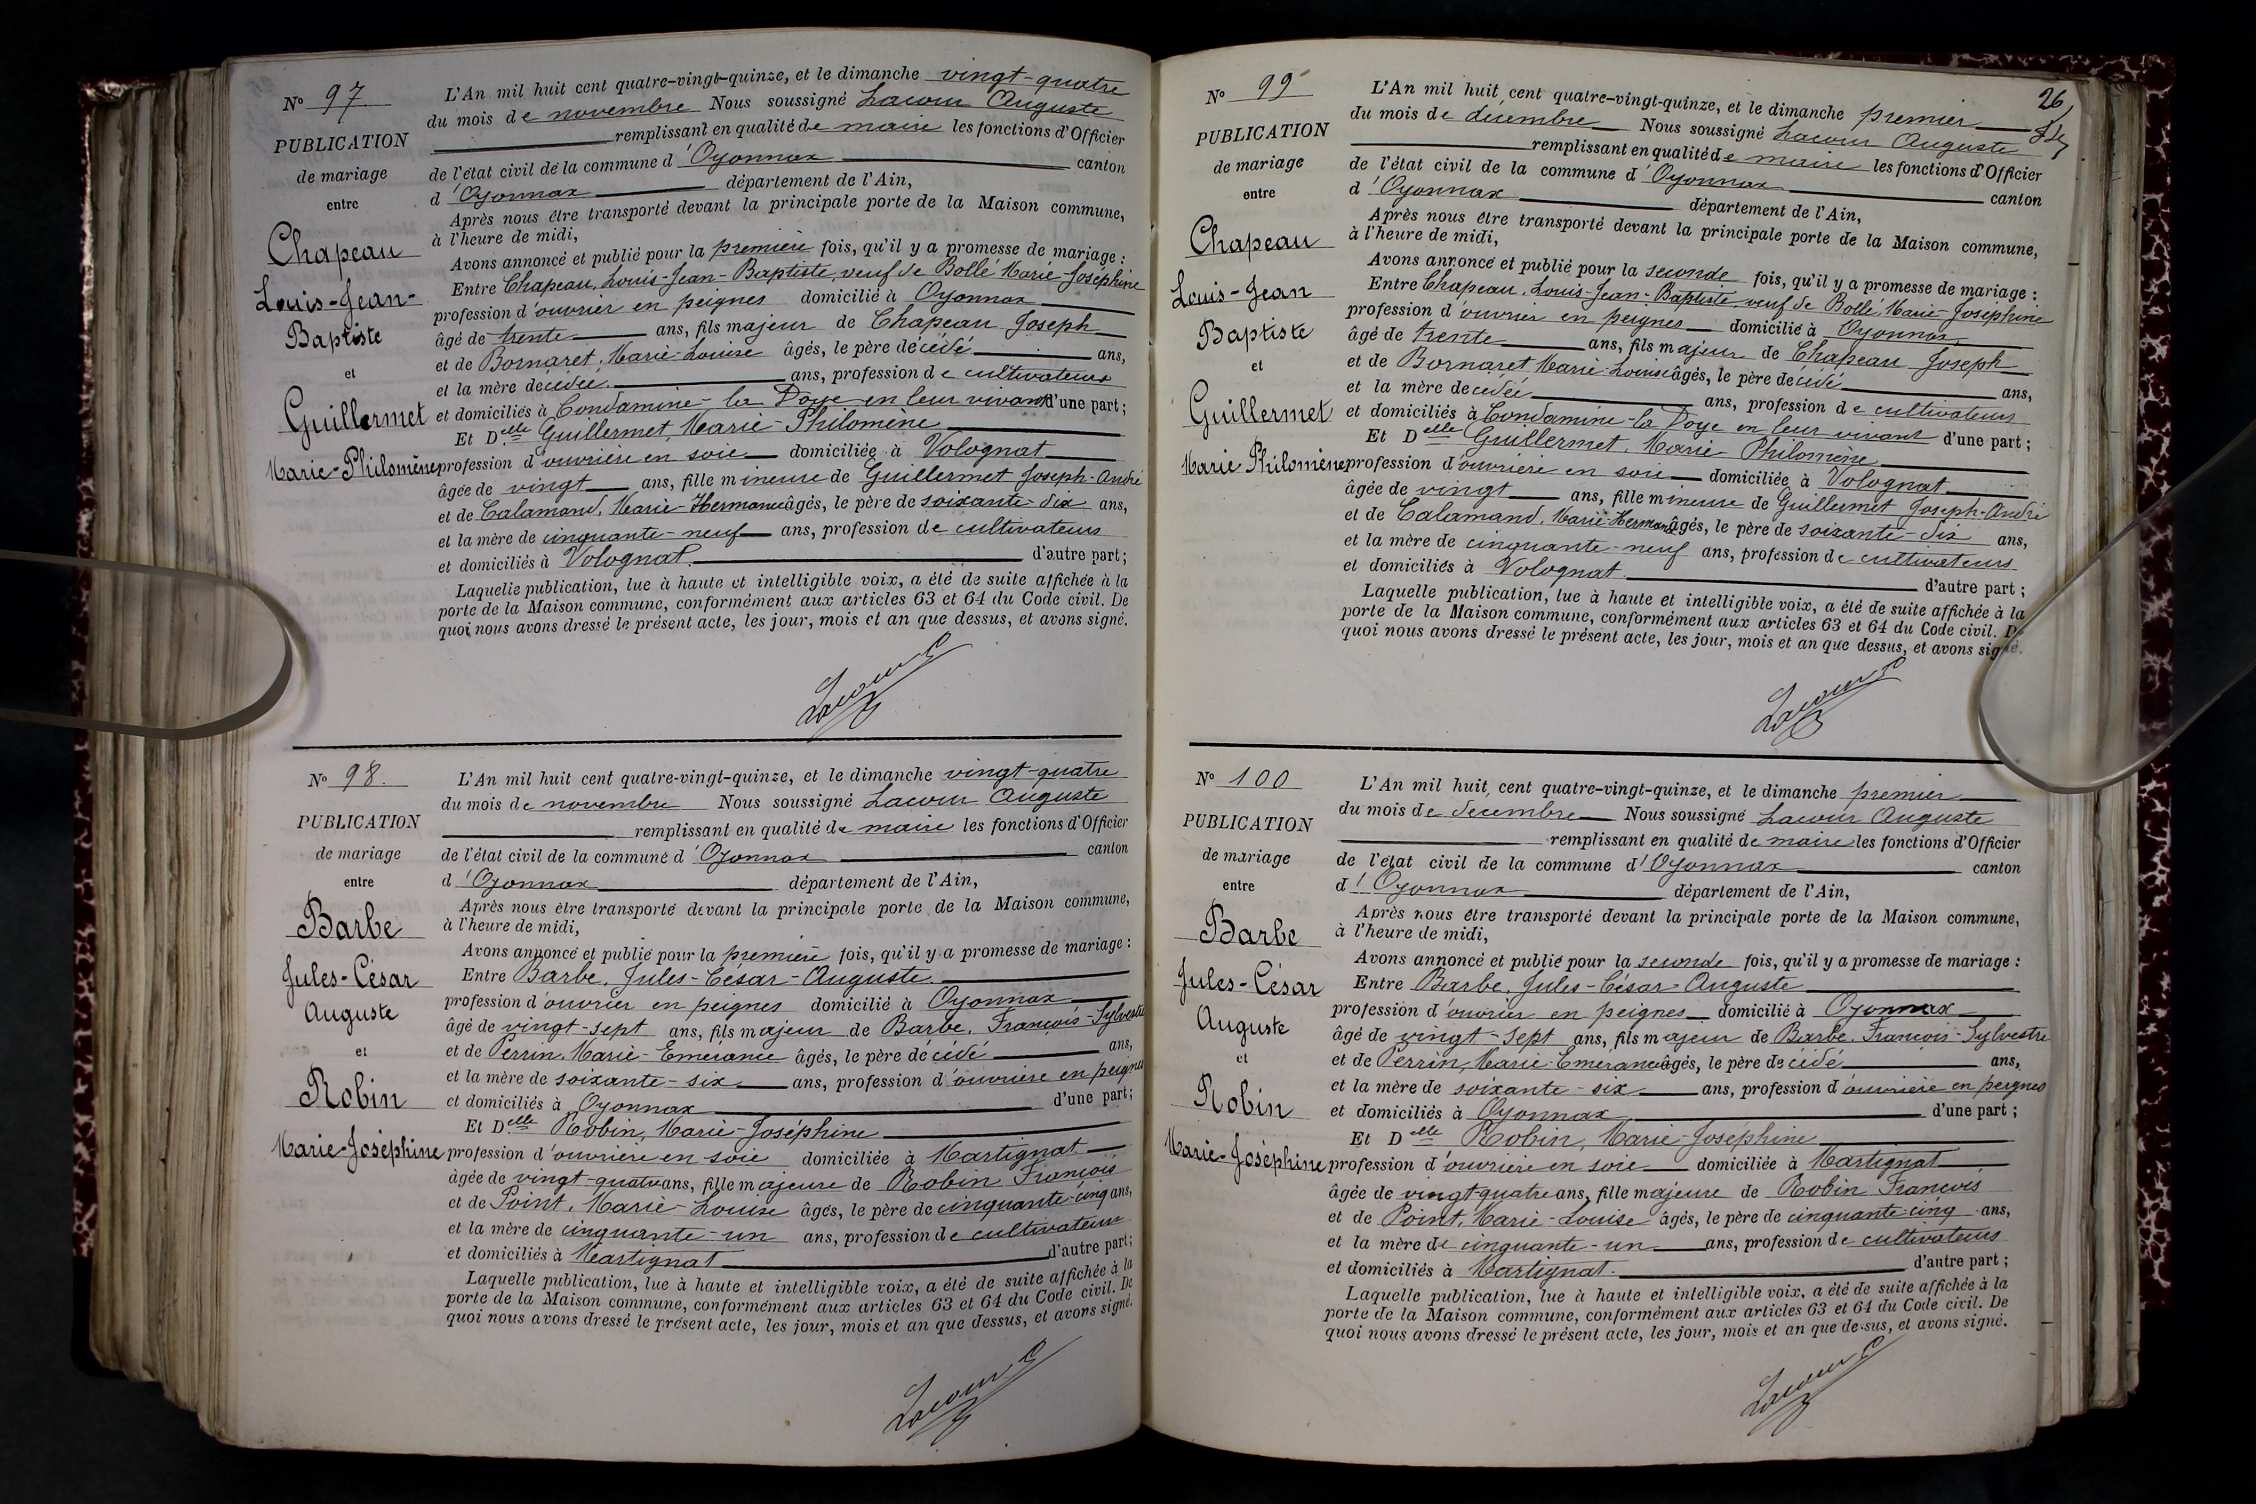 N° 97
PUBLICATION
de mariage
entre
Chapeau
Louis-Jean-
Baptiste
et
Guillermet
Marie-Philomène
L'An mil huit cent quatre-vingt-quinze, et le dimanche vingt-quatre
du mois de novembre Nous soussigné Lacour Auguste
remplissant en qualité de maire les fonctions d'Officier
de l'état civil de la commune d'Oyonnax canton
d'Oyonnax département de l'Ain,
Après nous être transporté devant la principale porte de la Maison commune,
à l'heure de midi,
Avons annoncé et publié pour la première fois, qu'il y a promesse de mariage :
Entre Chapeau, Louis-Jean-Baptiste, veuf de Bollé Marie-Joséphine
profession d'ouvrier en peignes domicilié à Oyonnax
âgé de trente ans, fils majeur de Chapeau Joseph
et de Bornaret, Marie-Louise âgés, le père décédé ans,
et la mère décédée. ans, profession de cultivateurs
et domiciliés à Condamine-la Doye en leur vivant d'une part ;
Et Delle Guillermet, Marie-Philomène
profession d'ouvrière en soie domiciliée à Volognat
âgée de vingt ans, fille mineure de Guillermet Joseph-André
et de Calamand, Marie-Hermance âgés, le père de soixante-dix ans,
et la mère de cinquante-neuf ans, profession de cultivateurs
et domiciliés à Volognat. d'autre part ;
Laquelle publication, lue à haute et intelligible voix, a été de suite affichée à la
porte de la Maison commune, conformément aux articles 63 et 64 du Code civil. De
quoi nous avons dressé le présent acte, les jour, mois et an que dessus, et avons signé.
Lacour
N° 98.
PUBLICATION
de mariage
entre
Barbe
Jules-César
Auguste
et
Robin
Marie-Joséphine
L'An mil huit cent quatre-vingt-quinze, et le dimanche vingt-quatre
du mois de novembre Nous soussigné Lacour Auguste
remplissant en qualité de maire les fonctions d'Officier
de l'état civil de la commune d'Oyonnax canton
d'Oyonnax département de l'Ain,
Après nous être transporté devant la principale porte de la Maison commune,
à l'heure de midi,
Avons annoncé et publié pour la première fois, qu'il y a promesse de mariage :
Entre Barbe, Jules-César-Auguste
profession d'ouvrier en peignes domicilié à Oyonnax
âgé de vingt-sept ans, fils majeur de Barbe, François-Sylvestre
et de Perrin, Marie-Emérance âgés, le père décédé ans,
et la mère de soixante-six ans, profession d'ouvrière en peignes
et domiciliés à Oyonnax d'une part ;
Et Delle Robin, Marie-Joséphine
profession d'ouvrière en soie domiciliée à Martignat
âgée de vingt-quatre ans, fille majeure de Robin François
et de Point, Marie-Louise âgés, le père de cinquante-cinq ans,
et la mère de cinquante-un ans, profession de cultivateurs
et domiciliés à Martignat d'autre part ;
Laquelle publication, lue à haute et intelligible voix, a été de suite affichée à la
porte de la Maison commune, conformément aux articles 63 et 64 du Code civil. De
quoi nous avons dressé le présent acte, les jour, mois et an que dessus, et avons signé.
Lacour
26
N° 99
PUBLICATION
de mariage
entre
Chapeau
Louis-Jean
Baptiste
et
Guillermet
Marie Philomène
L'An mil huit cent quatre-vingt-quinze, et le dimanche premier
du mois de décembre Nous soussigné Lacour Auguste
remplissant en qualité de maire les fonctions d'Officier
de l'état civil de la commune d'Oyonnax canton
d'Oyonnax département de l'Ain,
Après nous être transporté devant la principale porte de la Maison commune,
à l'heure de midi,
Avons annoncé et publié pour la seconde fois, qu'il y a promesse de mariage :
Entre Chapeau, Louis-Jean-Baptiste veuf de Bollé, Marie-Joséphine
profession d'ouvrier en peignes domicilié à Oyonnax
âgé de trente ans, fils majeur de Chapeau Joseph
et de Bornaret Marie-Louise âgés, le père décédé ans,
et la mère décédée ans, profession de cultivateurs
et domiciliés à Condamine-la Doye en leur vivant d'une part ;
Et Delle Guillermet, Marie-Philomène
profession d'ouvrière en soie domiciliée à Volognat
âgée de vingt ans, fille mineure de Guillermet Joseph-André
et de Calamand, Marie-Hermance âgés, le père de soixante-dix ans,
et la mère de cinquante-neuf ans, profession de cultivateurs
et domiciliés à Volognat. d'autre part ;
Laquelle publication, lue à haute et intelligible voix, a été de suite affichée à la
porte de la Maison commune, conformément aux articles 63 et 64 du Code civil. De
quoi nous avons dressé le présent acte, les jour, mois et an que dessus, et avons signé.
Lacour
N° 100
PUBLICATION
de mariage
entre
Barbe
Jules-César
Auguste
et
Robin
Marie-Joséphine
L'An mil huit cent quatre-vingt-quinze, et le dimanche premier
du mois de décembre Nous soussigné Lacour Auguste
remplissant en qualité de maire les fonctions d'Officier
de l'état civil de la commune d'Oyonnax canton
d'Oyonnax département de l'Ain,
Après nous être transporté devant la principale porte de la Maison commune,
à l'heure de midi,
Avons annoncé et publié pour la seconde fois, qu'il y a promesse de mariage :
Entre Barbe, Jules-César-Auguste
profession d'ouvrier en peignes domicilié à Oyonnax
âgé de vingt-sept ans, fils majeur de Barbe, François-Sylvestre
et de Perrin, Marie-Emérance âgés, le père décédé ans,
et la mère de soixante-six ans, profession d'ouvrière en peignes
et domiciliés à Oyonnax d'une part ;
Et Delle Robin, Marie-Joséphine
profession d'ouvrière en soie domiciliée à Martignat
âgée de vingt-quatre ans, fille majeure de Robin François
et de Point, Marie-Louise âgés, le père de cinquante-cinq ans,
et la mère de cinquante-un ans, profession de cultivateurs
et domiciliés à Martignat. d'autre part ;
Laquelle publication, lue à haute et intelligible voix, a été de suite affichée à la
porte de la Maison commune, conformément aux articles 63 et 64 du Code civil. De
quoi nous avons dressé le présent acte, les jour, mois et an que dessus, et avons signé.
Lacour